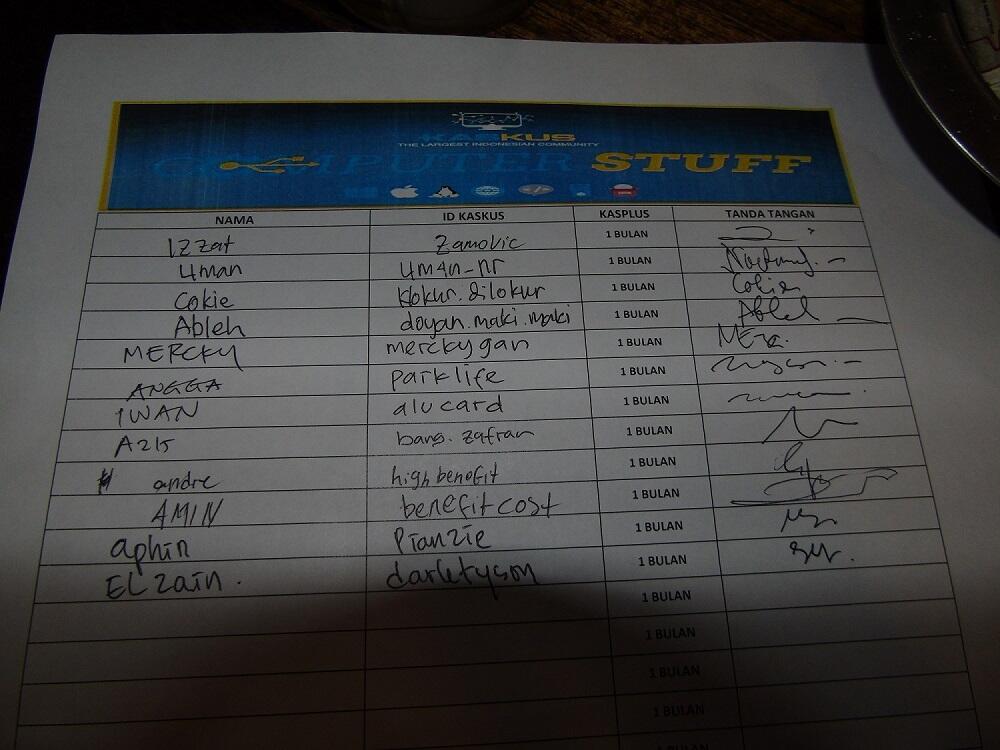 KASKUS
THE LARGEST INDONESIAN COMMUNITY
COMPUTER STUFF
NAMA ID KASKUS KASPLUS TANDA TANGAN
Izzat Zamovic 1 BULAN
uman um4n-nr 1 BULAN
Cokie klokur.dilokur 1 BULAN Cokie
Ableh doyan.maki.maki 1 BULAN Ableh
MERCKY merckygan 1 BULAN
ANGGA parklife 1 BULAN
IWAN alucard 1 BULAN
AZIS bang.zafran 1 BULAN
andre highbenefit 1 BULAN
AMIN benefitcost 1 BULAN
aphin Pianzie 1 BULAN
EL zain. darletyson 1 BULAN
1 BULAN
1 BULAN
1 BULAN
1 BULAN